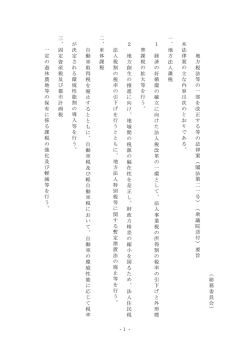 （総務委員会）
地方税法等の一部を改正する等の法律案（閣法第二一号）（衆議院送付）要旨
本法律案の主な内容は次のとおりである。
一、地方法人課税
１　経済の好循環の確立に向けた法人税改革の一環として、法人事業税の所得割の税率の引下げと外形標
準課税の拡大等を行う。
２　地方創生の推進に向け、地域間の税源の偏在を是正し、財政力格差の縮小を図るため、法人住民税
法人税割の税率の引下げを行うとともに、地方法人特別税等に関する暫定措置法の廃止等を行う。
二、車体課税
自動車取得税を廃止するとともに、自動車税及び軽自動車税において、自動車の環境性能に応じて税率
が決定される環境性能割の導入等を行う。
三、固定資産税及び都市計画税
一定の遊休農地等の保有に係る課税の強化及び軽減等を行う。
- 1 -